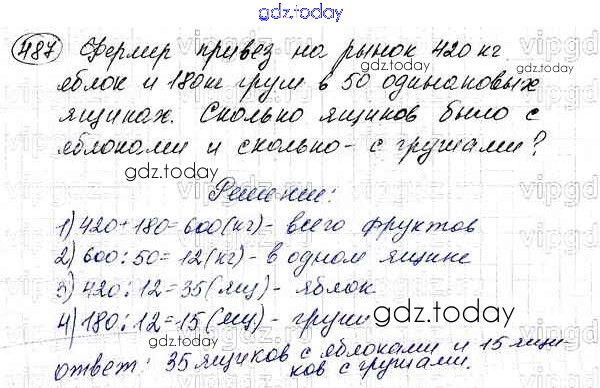 gdz.today
487 Фермер привез на рынок 420 кг
яблок и 180 кг груш в 50 одинаковых
ящиках. Сколько ящиков было с
яблоками и сколько - с грушами?
gdz.today
Решение:
1) 420+180=600(кг)- всего фруктов
2) 600:50=12(кг)- в одном ящике
3) 420:12=35(ящ)- яблок
gdz.today
4) 180:12=15(ящ)- груши
ответ: 35 ящиков с яблоками и 15 ящи-
ков с грушами.